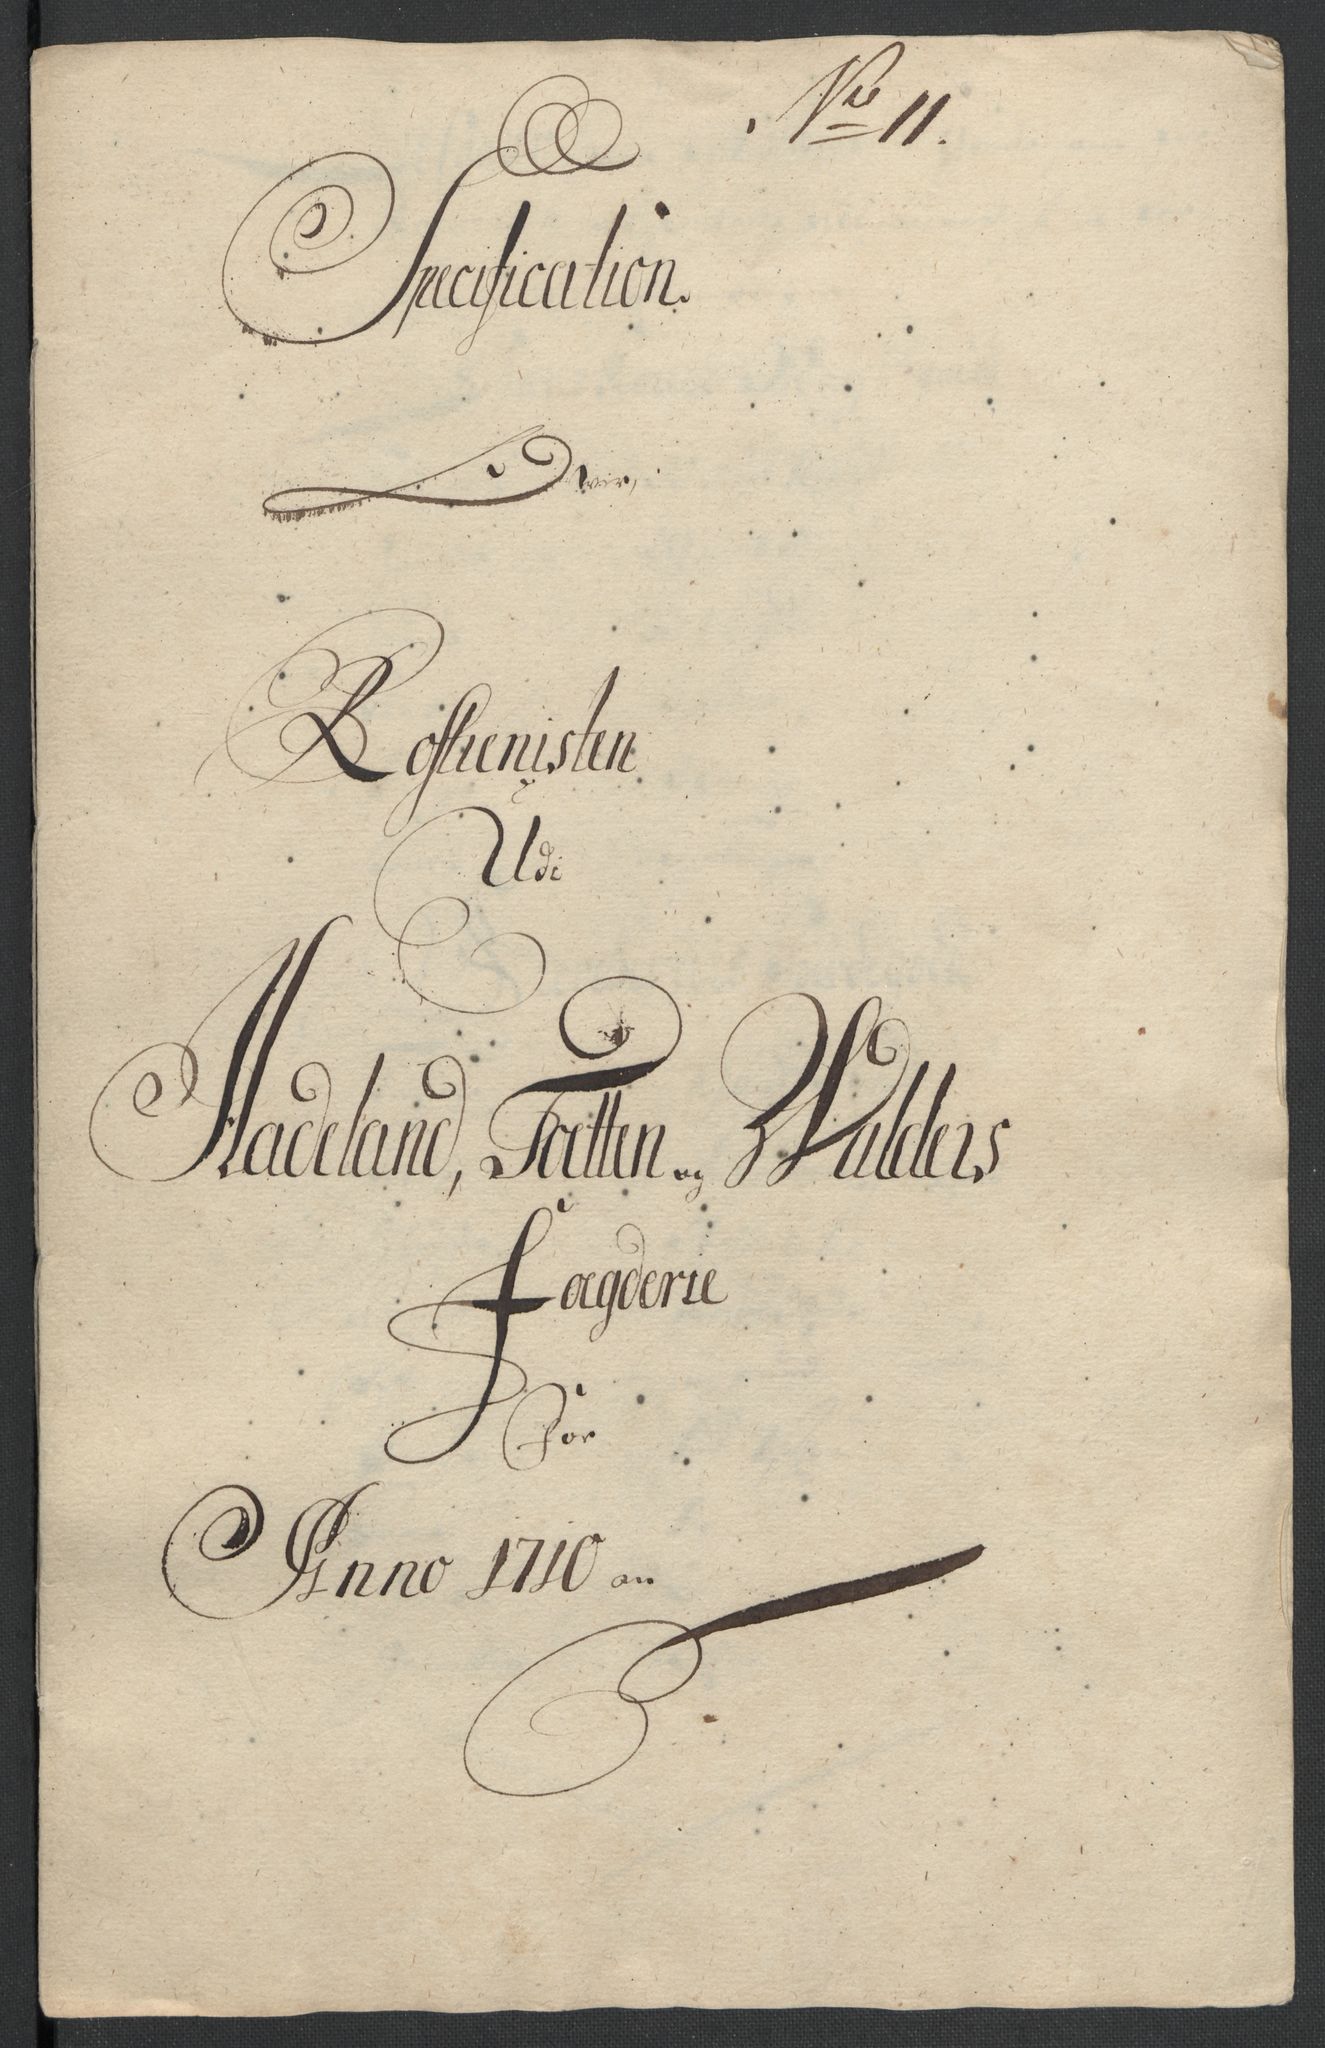 No 11.
Specification.
Over,
Rostienisten
Udi
Hadeland, Totten og Walders
Fogderie
For
Anno 1710